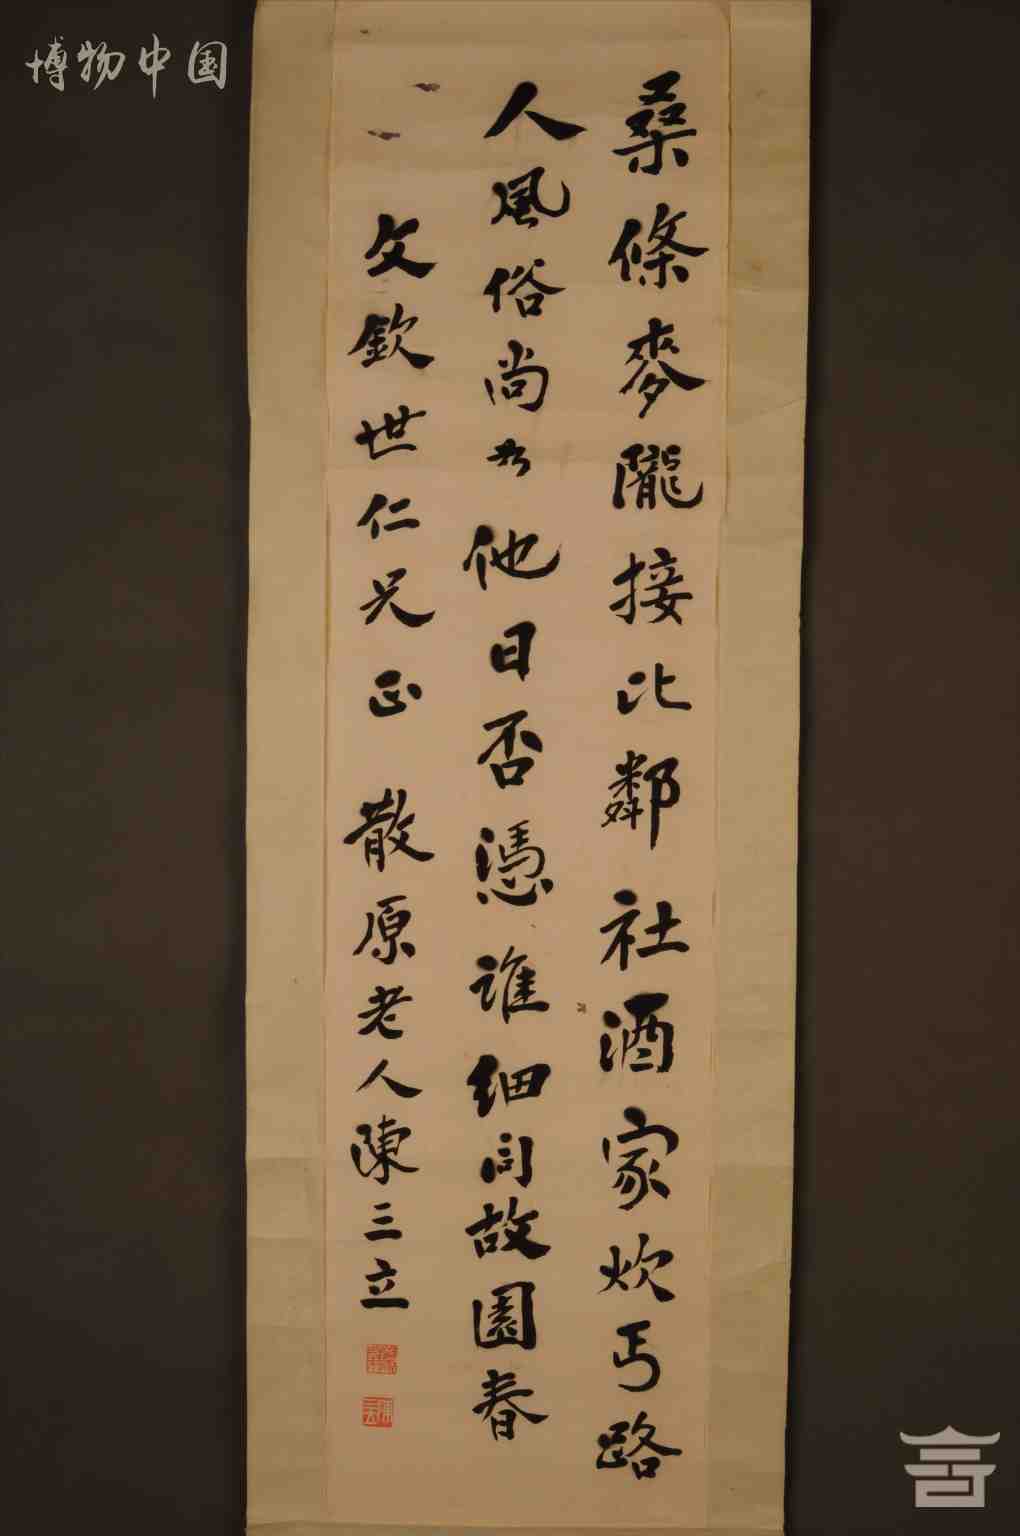 博物中国
桑條麥隴接比鄰社酒家炊丐路
人風俗尚於他日否憑誰細問故園春
文欽世仁兄正 散原老人陳三立